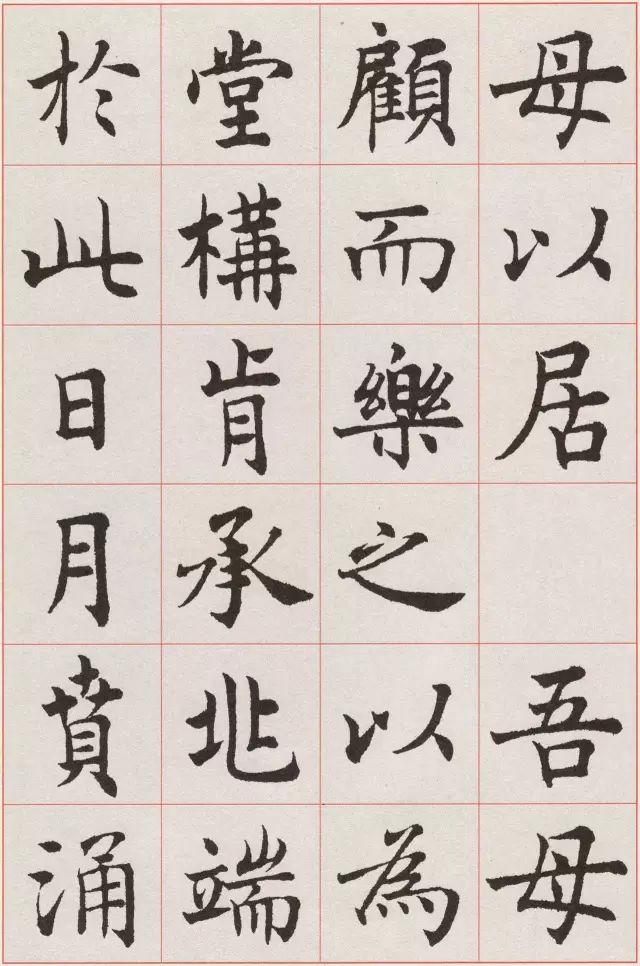 母以居　吾母
顧而樂之以為
堂構肯承兆端
於此日月賁涌